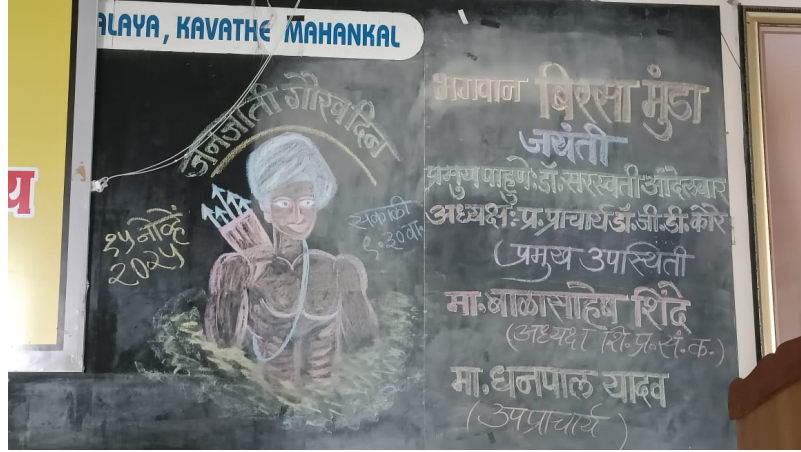 ALAYA, KAVATHE MAHANKAL
य
जनजाती गौरव दिन
१५ नोव्हें
२०२५
सकाळी
९.३०वा.
भगवान बिरसा मुंडा
जयंती
प्रमुख पाहुणे: डॉ. सरस्वती आंदेलवार
अध्यक्ष: प्र. प्राचार्य डॉ. जी. डी. कोरे
प्रमुख उपस्थिती
मा. बाळासाहेब शिंदे
(अध्यक्ष शि. प्र. सं. क.)
मा. धनपाल यादव
(उपप्राचार्य)